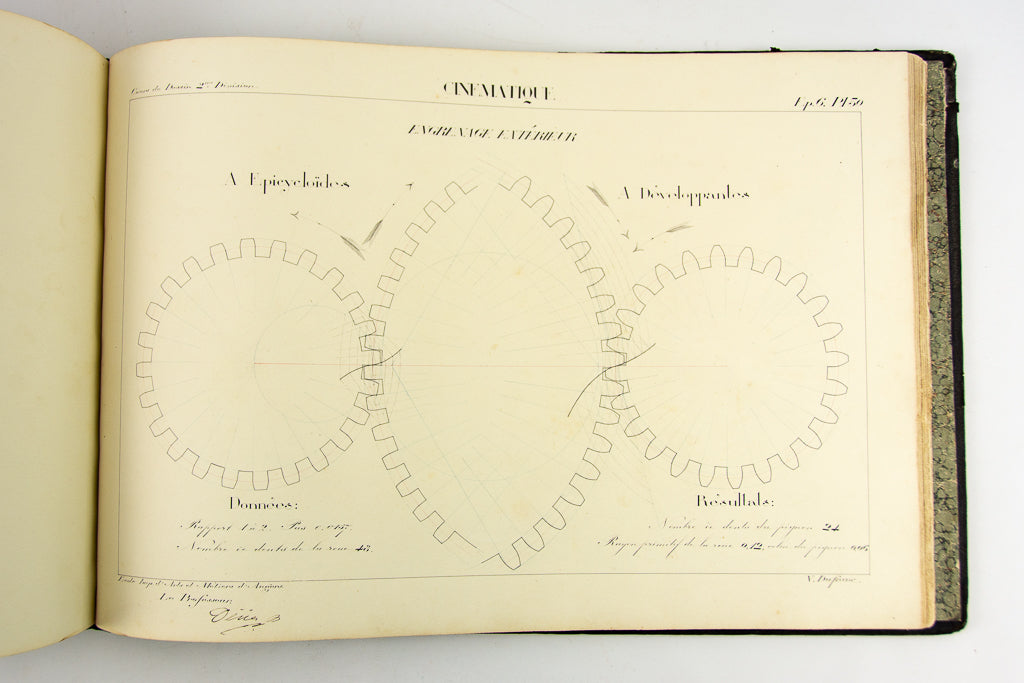 Cours de Dessin 2me Division.
CINEMATIQUE.
Ep. 6. Pl 30
ENGRENAGE EXTÉRIEUR
A Epicycloïdes
A Développantes
Données:
Résultats:
Rapport 1 à 2. Pas 0,0157.
Nombre de dents du pignon 24
Nombre de dents de la roue 48.
Rayon primitif de la roue 0,12, celui du pignon
Ecole Imp. d'Arts et Métiers d'Angers
Le Professeur